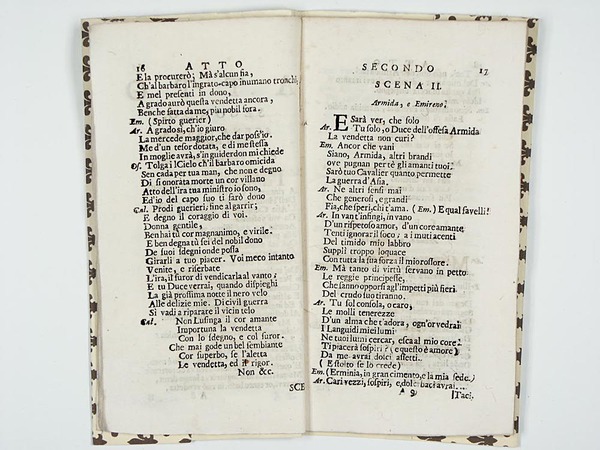 16 ATTO
E la procuterò; Mà s'alcun fia,
Ch'al barbaro l'ingrato capo inumano tronchi,
E mel presenti in dono,
A grado aurò questa vendetta ancora,
Benche fatta da me, più nobil fora.
Em. (Spirto guerier)
Ar. A grado sì, ch'io giuro
La mercede maggior, che dar poss'io.
Me d'un tesor dotata, e di me stessa
In moglie avrà, s'in guiderdon mi chiede
Of. Tolga il Cielo ch'il barbaro omicida
Sen cada per tua man, che non e degno
Di sì onorata morte un cor villano
Atto dell'ira tua ministro io sono,
Ed io del capo suo ti farò dono
Cal. Prodi guerieri; fine al garrir;
E degno il coraggio di voi.
Donna gentile,
Ben hai tù cor magnanimo, e virile.
E ben degna tù sei del nobil dono
De suoi sdegni onde possa
Girarli a tuo piacer. Voi meco intanto
Venite, e riserbate
L'ira, il furor di vendicarla al vanto:
E tu Duce verrai, quando dispieghi
La già prossima notte il nero velo
Alle delizie mie. Di civil guerra
Si vadi a riparare il vicin telo
Cal. Non Lusinga il cor amante
Importuna la vendetta
Con lo sdegno, e col furor.
Che mai gode un bel sembiante
Cor superbo, se l'aletta
Le vendetta, ed il rigor.
Non &c.
SCE
SECONDO 17
SCENA II.
Armida, e Emireno.
Ar. E Sarà ver, che solo
Tu solo, o Duce dell'offesa Armida
La vendetta non curi?
Em. Ancor che vani
Siano, Armida, altri brandi
ove pugnan per te gl'amanti tuoi.
Sarò tuo Cavalier quanto permette
La guerra d'Asia.
Ar. Ne altri sensi mai
Che generosi, e grandi
Fia, che speri, chi t'ama. (Em.) E qual favelli!
Ar. In van t'infingi, in vano
D'un rispetoso amor, d'un core amante
Tenti ignorar il foco: a i muti accenti
Del timido mio labbro
Supplì troppo loquace
Con tutta la sua forza il mio rossore.
Em. Mà tanto di virtù servano in petto
Le reggie principesse,
Che sanno opporsi agl'impeti più fieri
Del crudo suo tiranno.
Ar. Tu sol consola, o caro,
Le molli tenerezze
D'un alma che t'adora, ogn'or vedrai
I Languidi miei lumi
Ne tuoi lumi cercar, esca al mio core.
Ti piacerà sospiri? (e questo è amore)
Da me avrai dolci affetti..
( E stolto se lo crede)
Em. (Erminia, in gran cimento, e la mia fede.)
Ar. Cari vezzi, sospiri, e dolci baci avrai...
A 9 [Taci.